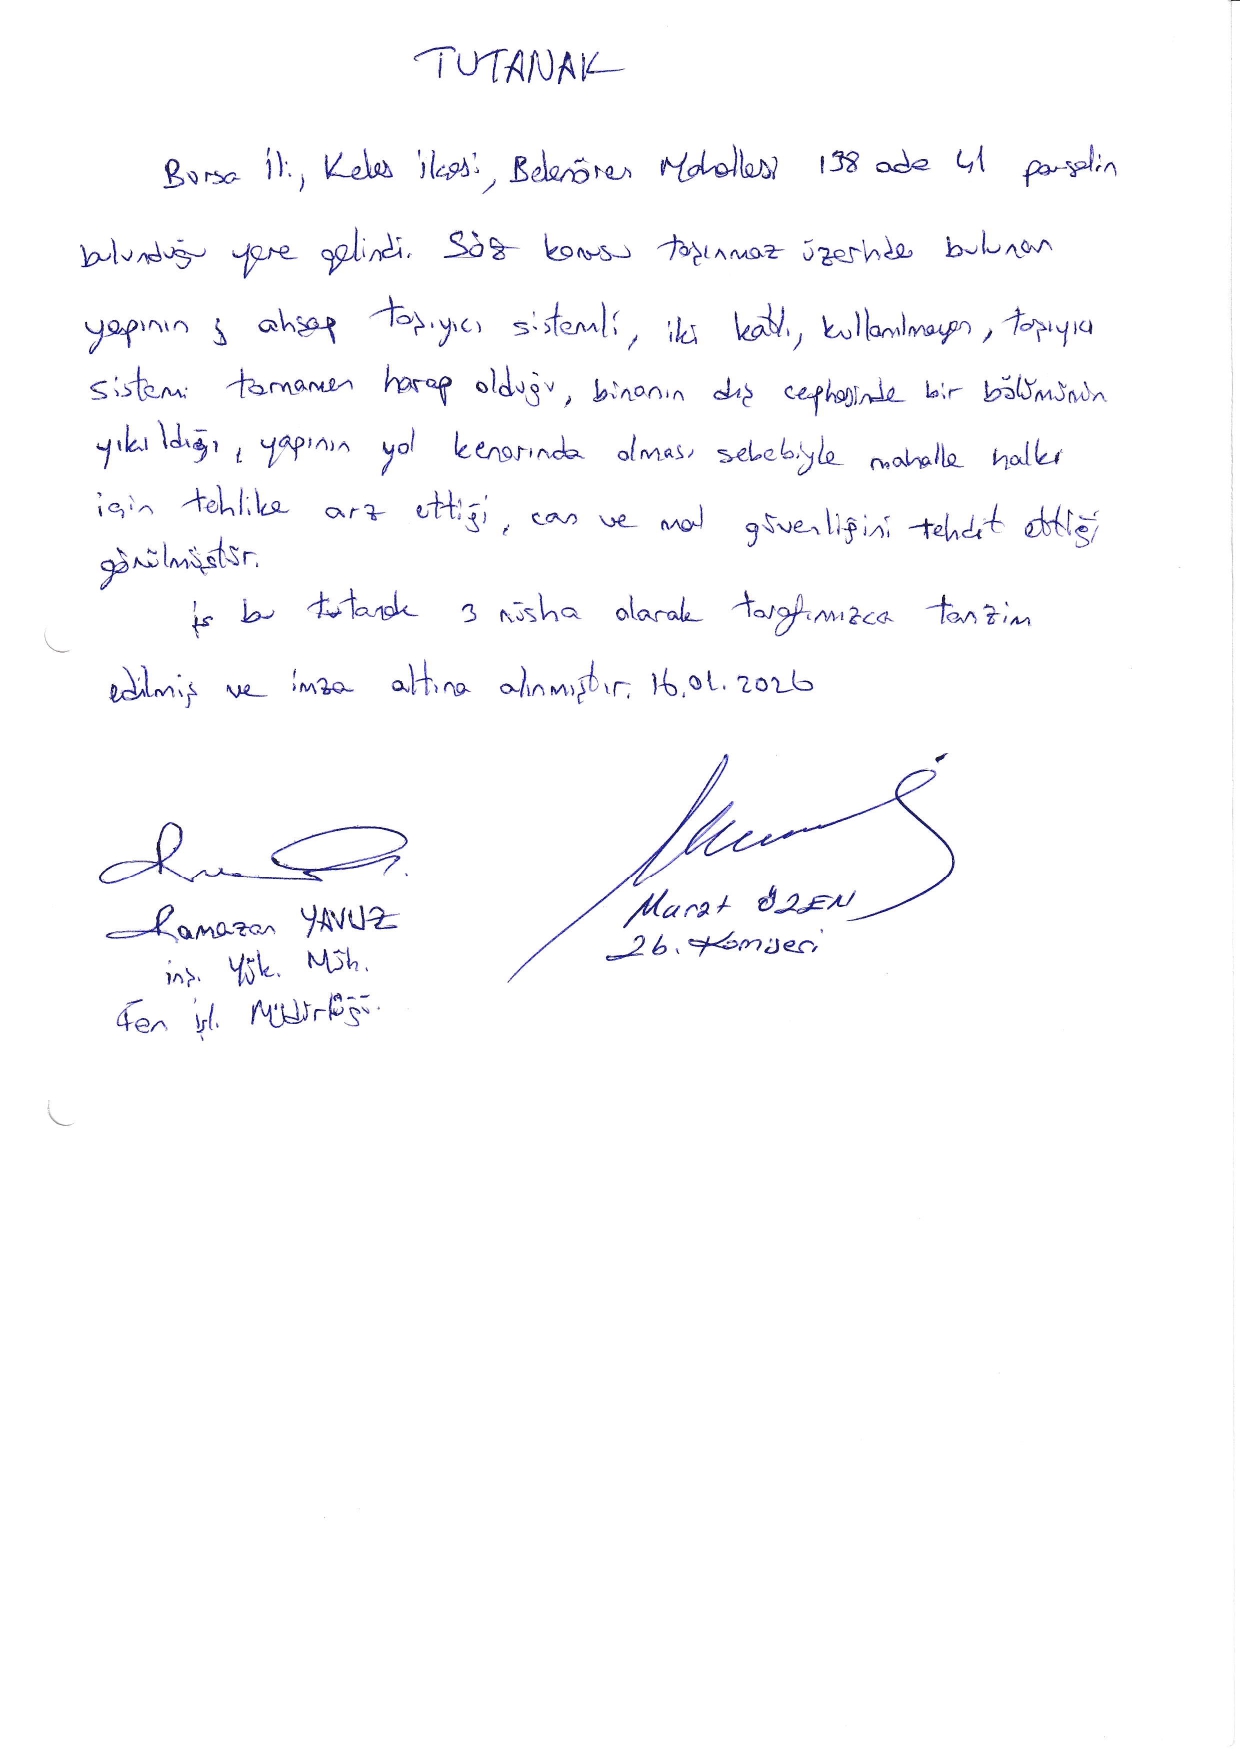 TUTANAK
Bursa İli, Keles İlçesi, Belenören Mahallesi 138 ada 41 parselin
bulunduğu yere gelindi. Söz konusu taşınmaz üzerinde bulunan
yapının; ahşap taşıyıcı sistemli, iki katlı, kullanılmayan, taşıyıcı
sistemi tamamen harap olduğu, binanın dış cephesinde bir bölümünün
yıkıldığı, yapının yol kenarında olması sebebiyle mahalle halkı
için tehlike arz ettiği, can ve mal güvenliğini tehdit ettiği
görülmüştür.
İş bu tutanak 3 nüsha olarak tarafımızca tanzim
edilmiş ve imza altına alınmıştır. 16.01.2026
Ramazan YAVUZ
İnş. Yük. Müh.
Fen İşl. Müdürlüğü.
Murat ÖZEN
Zb. Komiseri